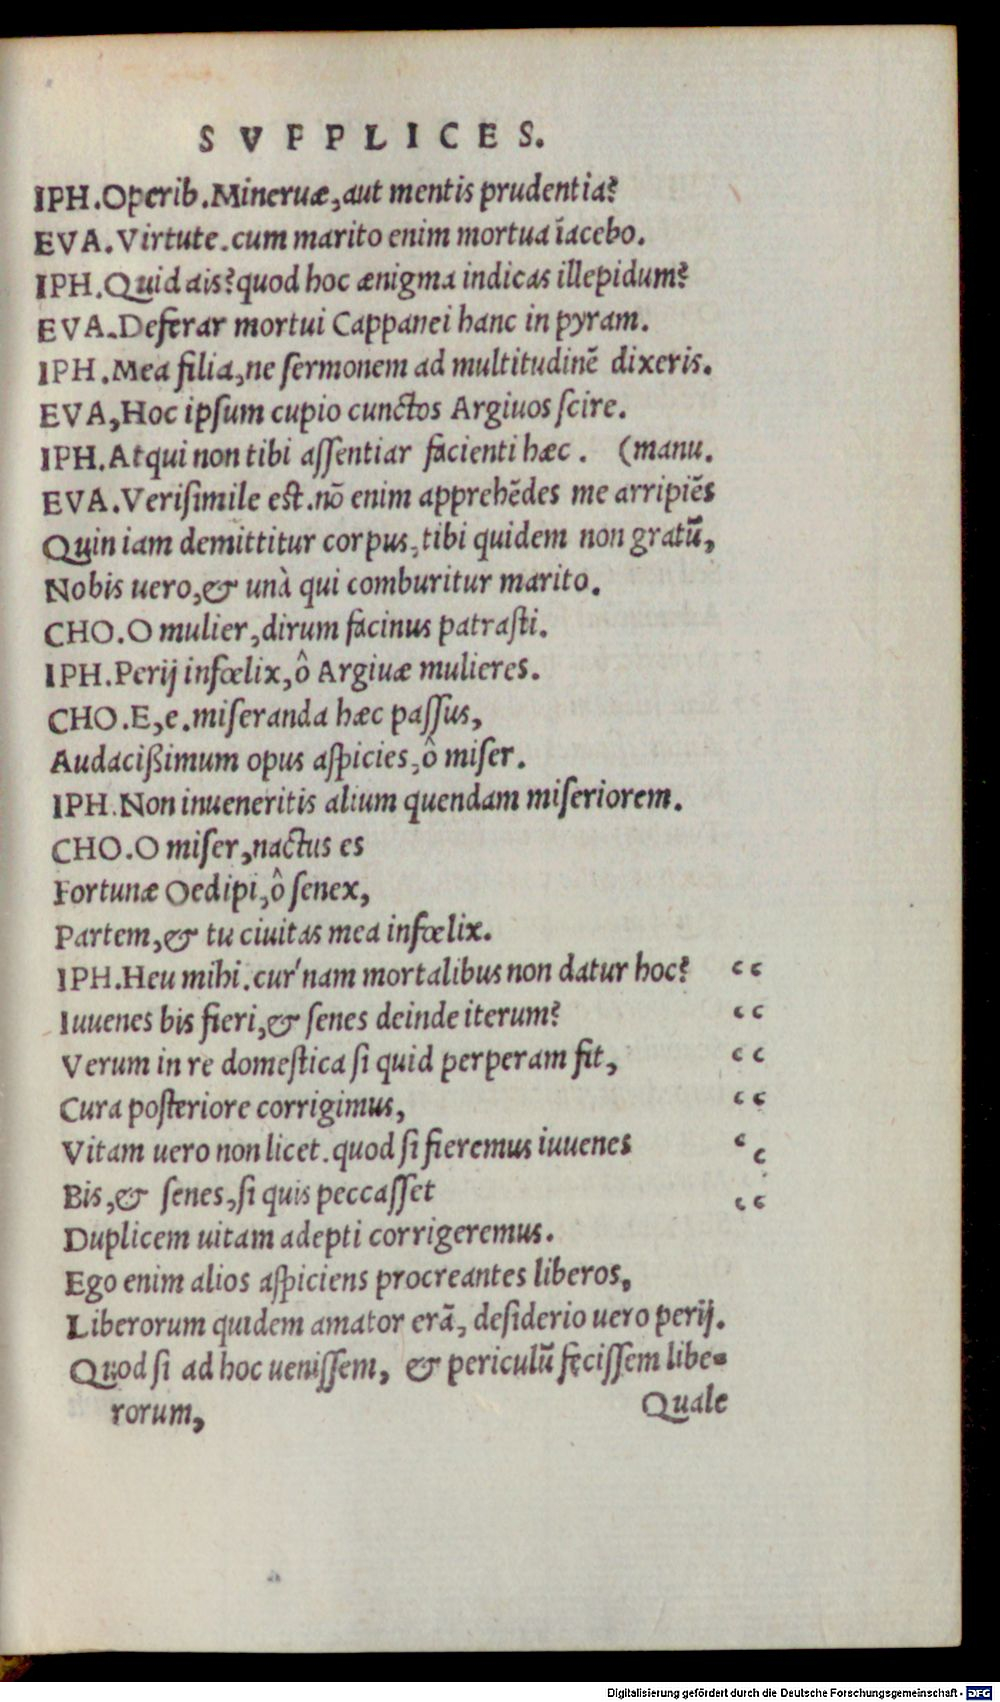 SVPPLICES.
IPH.Operib.Mineruæ,aut mentis prudentia?
EVA.Virtute.cum marito enim mortua iacebo.
IPH.Quid ais?quod hoc ænigma indicas illepidum?
EVA.Deferar mortui Cappanei hanc in pyram.
IPH.Mea filia,ne sermonem ad multitudinē dixeris.
EVA,Hoc ipsum cupio cunctos Argiuos scire.
IPH.Atqui non tibi assentiar facienti hæc. (manu.
EVA.Verisimile est.nō enim apprehēdes me arripiēs
Quin iam demittitur corpus,tibi quidem non gratū,
Nobis uero,& unà qui comburitur marito.
CHO.O mulier,dirum facinus patrasti.
IPH.Perij infœlix,ô Argiuæ mulieres.
CHO.E,e.miseranda hæc passus,
Audacißimum opus aspicies,ô miser.
IPH.Non inueneritis alium quendam miseriorem.
CHO.O miser,nactus es
Fortunæ Oedipi,ô senex,
Partem,& tu ciuitas mea infœlix.
IPH.Heu mihi.cur'nam mortalibus non datur hoc? “
Iuuenes bis fieri,& senes deinde iterum? “
Verum in re domestica si quid perperam fit, “
Cura posteriore corrigimus, “
Vitam uero non licet.quod si fieremus iuuenes “
Bis,& senes,si quis peccasset “
Duplicem uitam adepti corrigeremus.
Ego enim alios aspiciens procreantes liberos,
Liberorum quidem amator erā, desiderio uero perij.
Quod si ad hoc uenissem, & periculū fecissem libe-
rorum, Quale
Digitalisierung gefördert durch die Deutsche Forschungsgemeinschaft - DFG